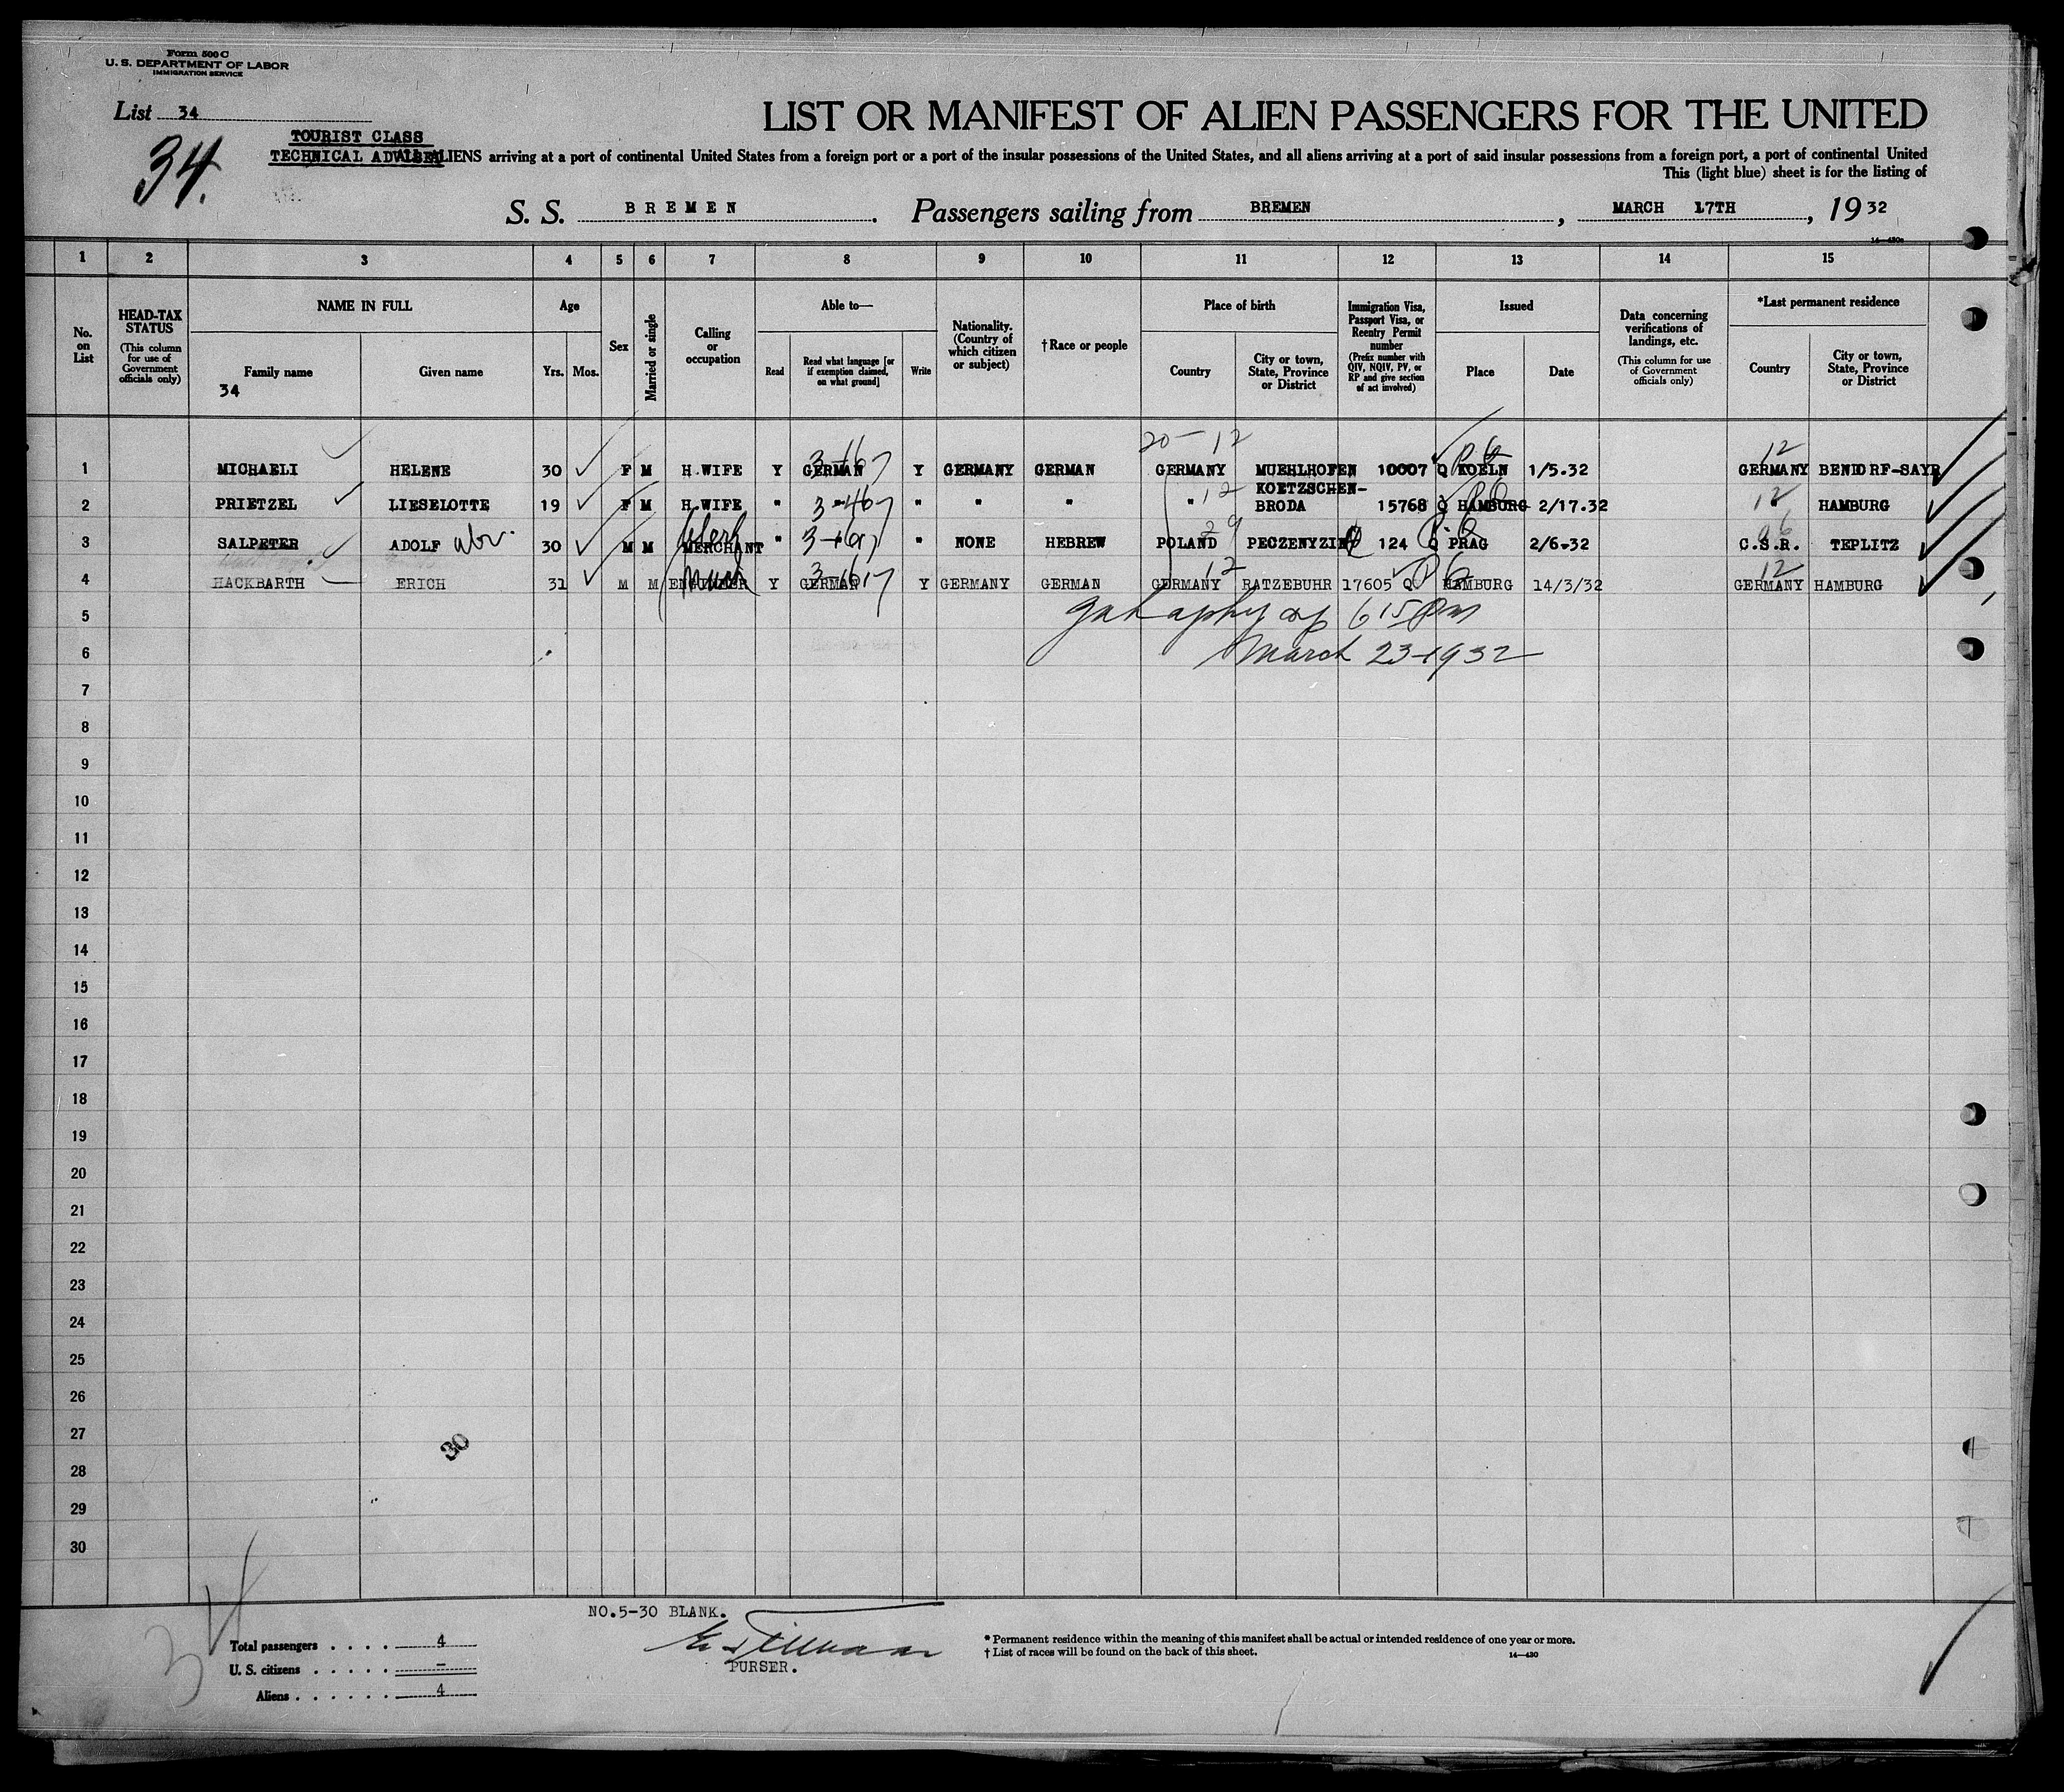 Form 500 C
U. S. DEPARTMENT OF LABOR
IMMIGRATION SERVICE
List 34
34.
TOURIST CLASS
TECHNICAL ADVISER
LIST OR MANIFEST OF ALIEN PASSENGERS FOR THE UNITED
ALIENS arriving at a port of continental United States from a foreign port or a port of the insular possessions of the United States, and all aliens arriving at a port of said insular possessions from a foreign port, a port of continental United
This (light blue) sheet is for the listing of
S. S. BREMEN. Passengers sailing from BREMEN, MARCH 17TH, 1932
1 2 3 4 5 6 7 8 9 10 11 12 13 14 15
No. on List
HEAD-TAX STATUS (This column for use of Government officials only)
NAME IN FULL
34
Family name Given name
Age
Yrs. Mos.
Sex
Married or single
Calling or occupation
Able to—
Read
Read what language [or if exemption claimed, on what ground]
Write
Nationality. (Country of which citizen or subject)
† Race or people
Place of birth
Country
City or town, State, Province or District
Immigration Visa, Passport Visa, or Reentry Permit number (Prefix number with QIV, NQIV, PV, or RP and give section of act involved)
Issued
Place Date
Data concerning verifications of landings, etc. (This column for use of Government officials only)
*Last permanent residence
Country
City or town, State, Province or District
20 - 12
1 MICHAELI HELENE 30 F M H.WIFE Y GERMAN Y GERMANY GERMAN GERMANY MUEHLHOFEN 10007 Q KOELN 1/5.32 12 GERMANY BENDORF-SAYR
2 PRIETZEL LIESELOTTE 19 F M H.WIFE " " " " " 12 KOETZSCHEN-BRODA 15768 Q HAMBURG 2/17.32 12 HAMBURG
3 SALPETER ADOLF 30 M M MERCHANT Clerk " " NONE HEBREW POLAND 29 124 Q PRAG 2/6-32 C.S.R. TEPLITZ
4 HACKBARTH ERICH 31 M M ENGINEER Y GERMAN Y GERMANY GERMAN GERMANY 12 RATZEBUHR 17605 Q HAMBURG 14/3/32 12 GERMANY HAMBURG
5 6 15 Pm
6 March 23-1932
7
8
9
10
11
12
13
14
15
16
17
18
19
20
21
22
23
24
25
26
27
30
28
29
30
NO.5-30 BLANK.
34
Total passengers . . . . 4
U. S. citizens . . . . . –
Aliens . . . . . . 4
PURSER.
* Permanent residence within the meaning of this manifest shall be actual or intended residence of one year or more.
† List of races will be found on the back of this sheet.
14—430